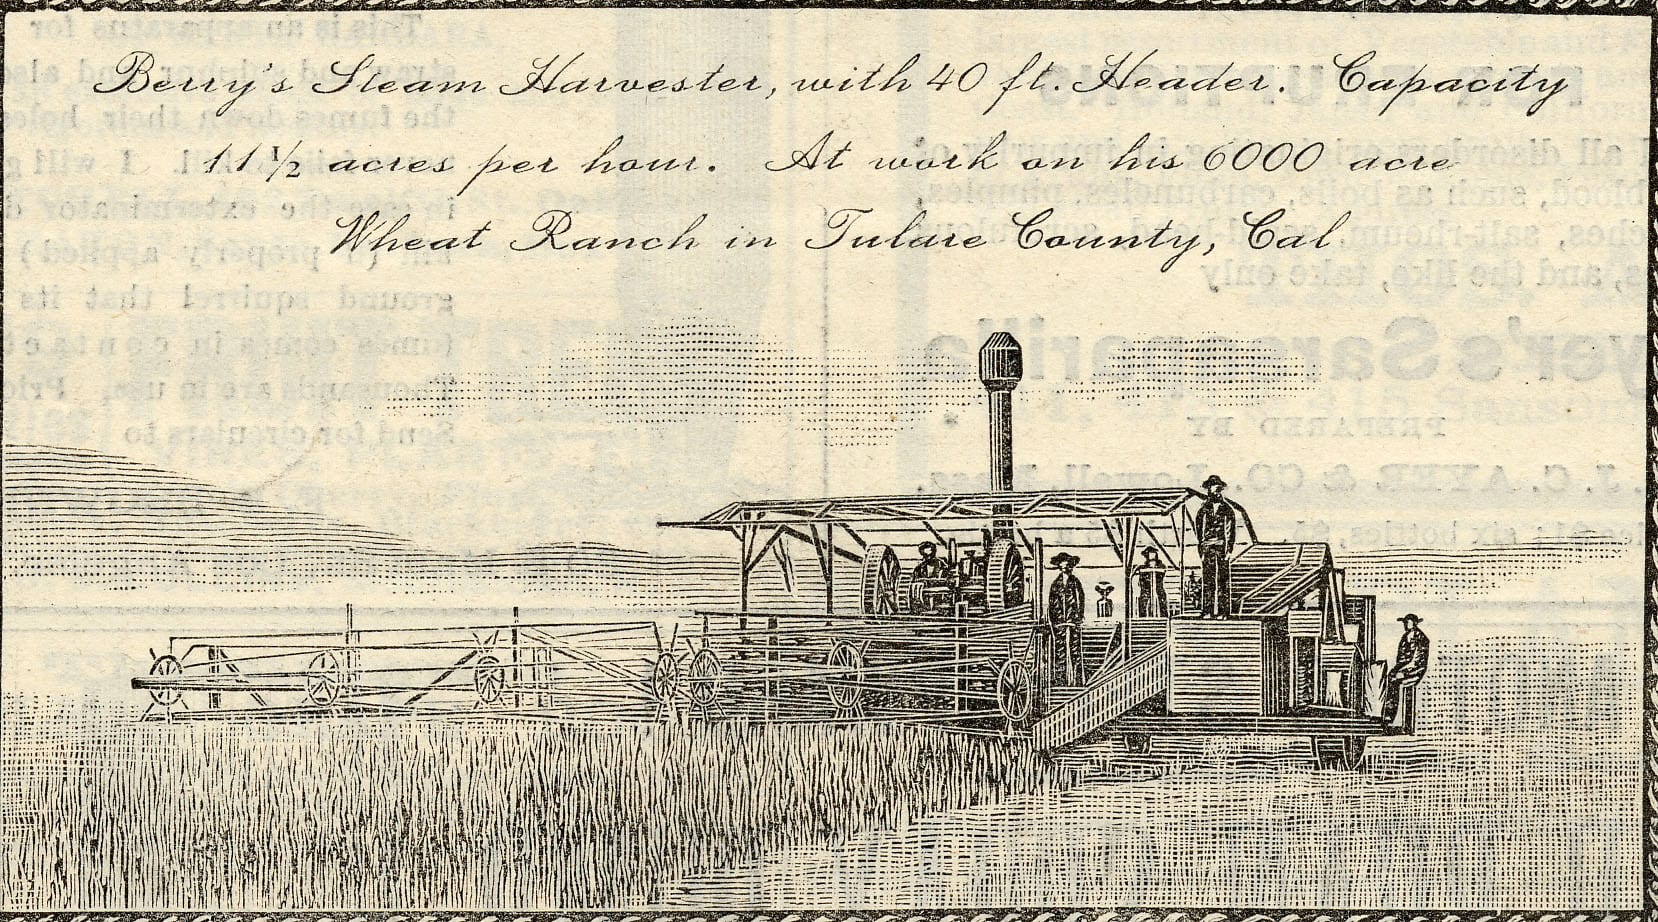 Berry's Steam Harvester, with 40 ft. Header. Capacity
11 1/2 acres per hour. At work on his 6000 acre
Wheat Ranch in Tulare County, Cal